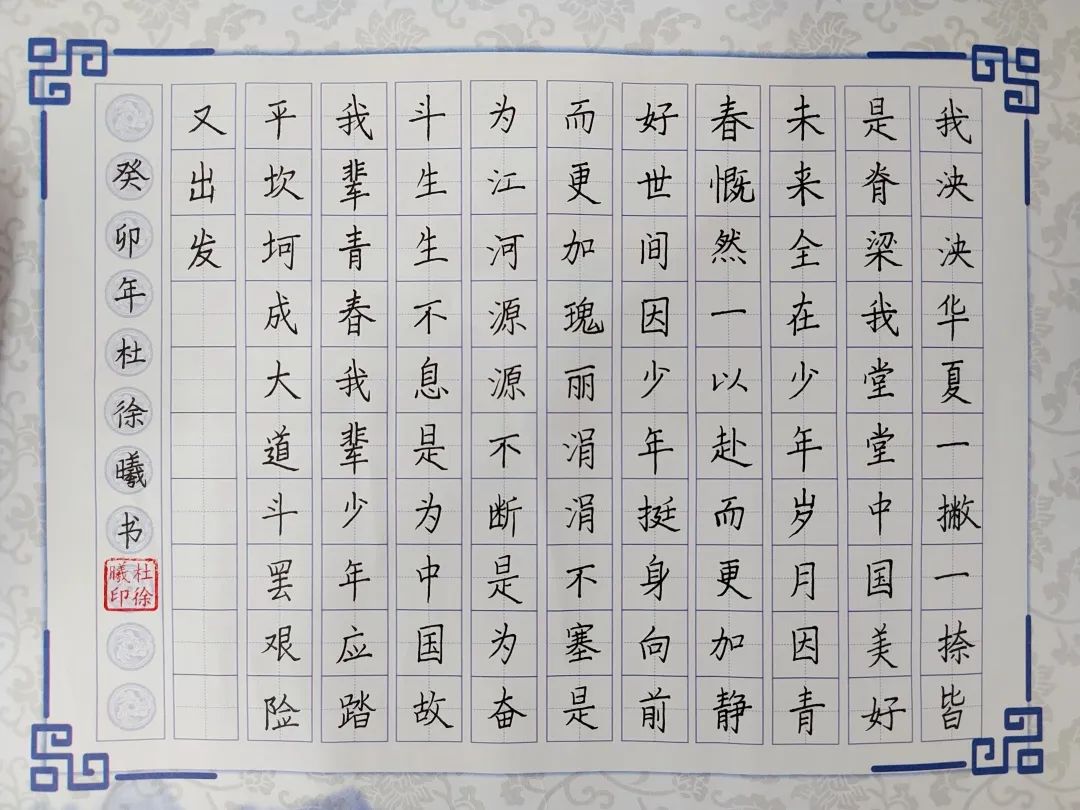 我泱泱华夏一撇一捺皆
是脊梁我堂堂中国美好
未来全在少年岁月因青
春慨然一以赴而更加静
好世间因少年挺身向前
而更加瑰丽涓涓不塞是
为江河源源不断是为奋
斗生生不息是为中国故
我辈青春我辈少年应踏
平坎坷成大道斗罢艰险
又出发
癸卯年杜徐曦书
杜徐
曦印